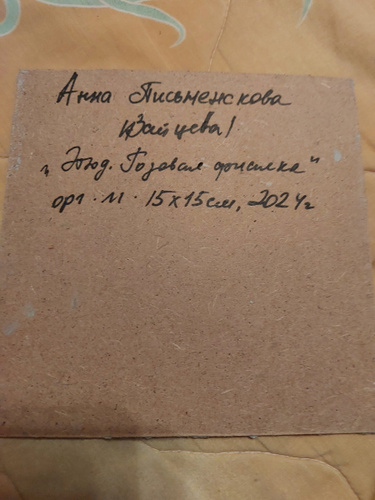 Анна Письменскова
(Зайцева)
"Этюд. Розовая фиалка"
орг. м. 15х15см, 2024г